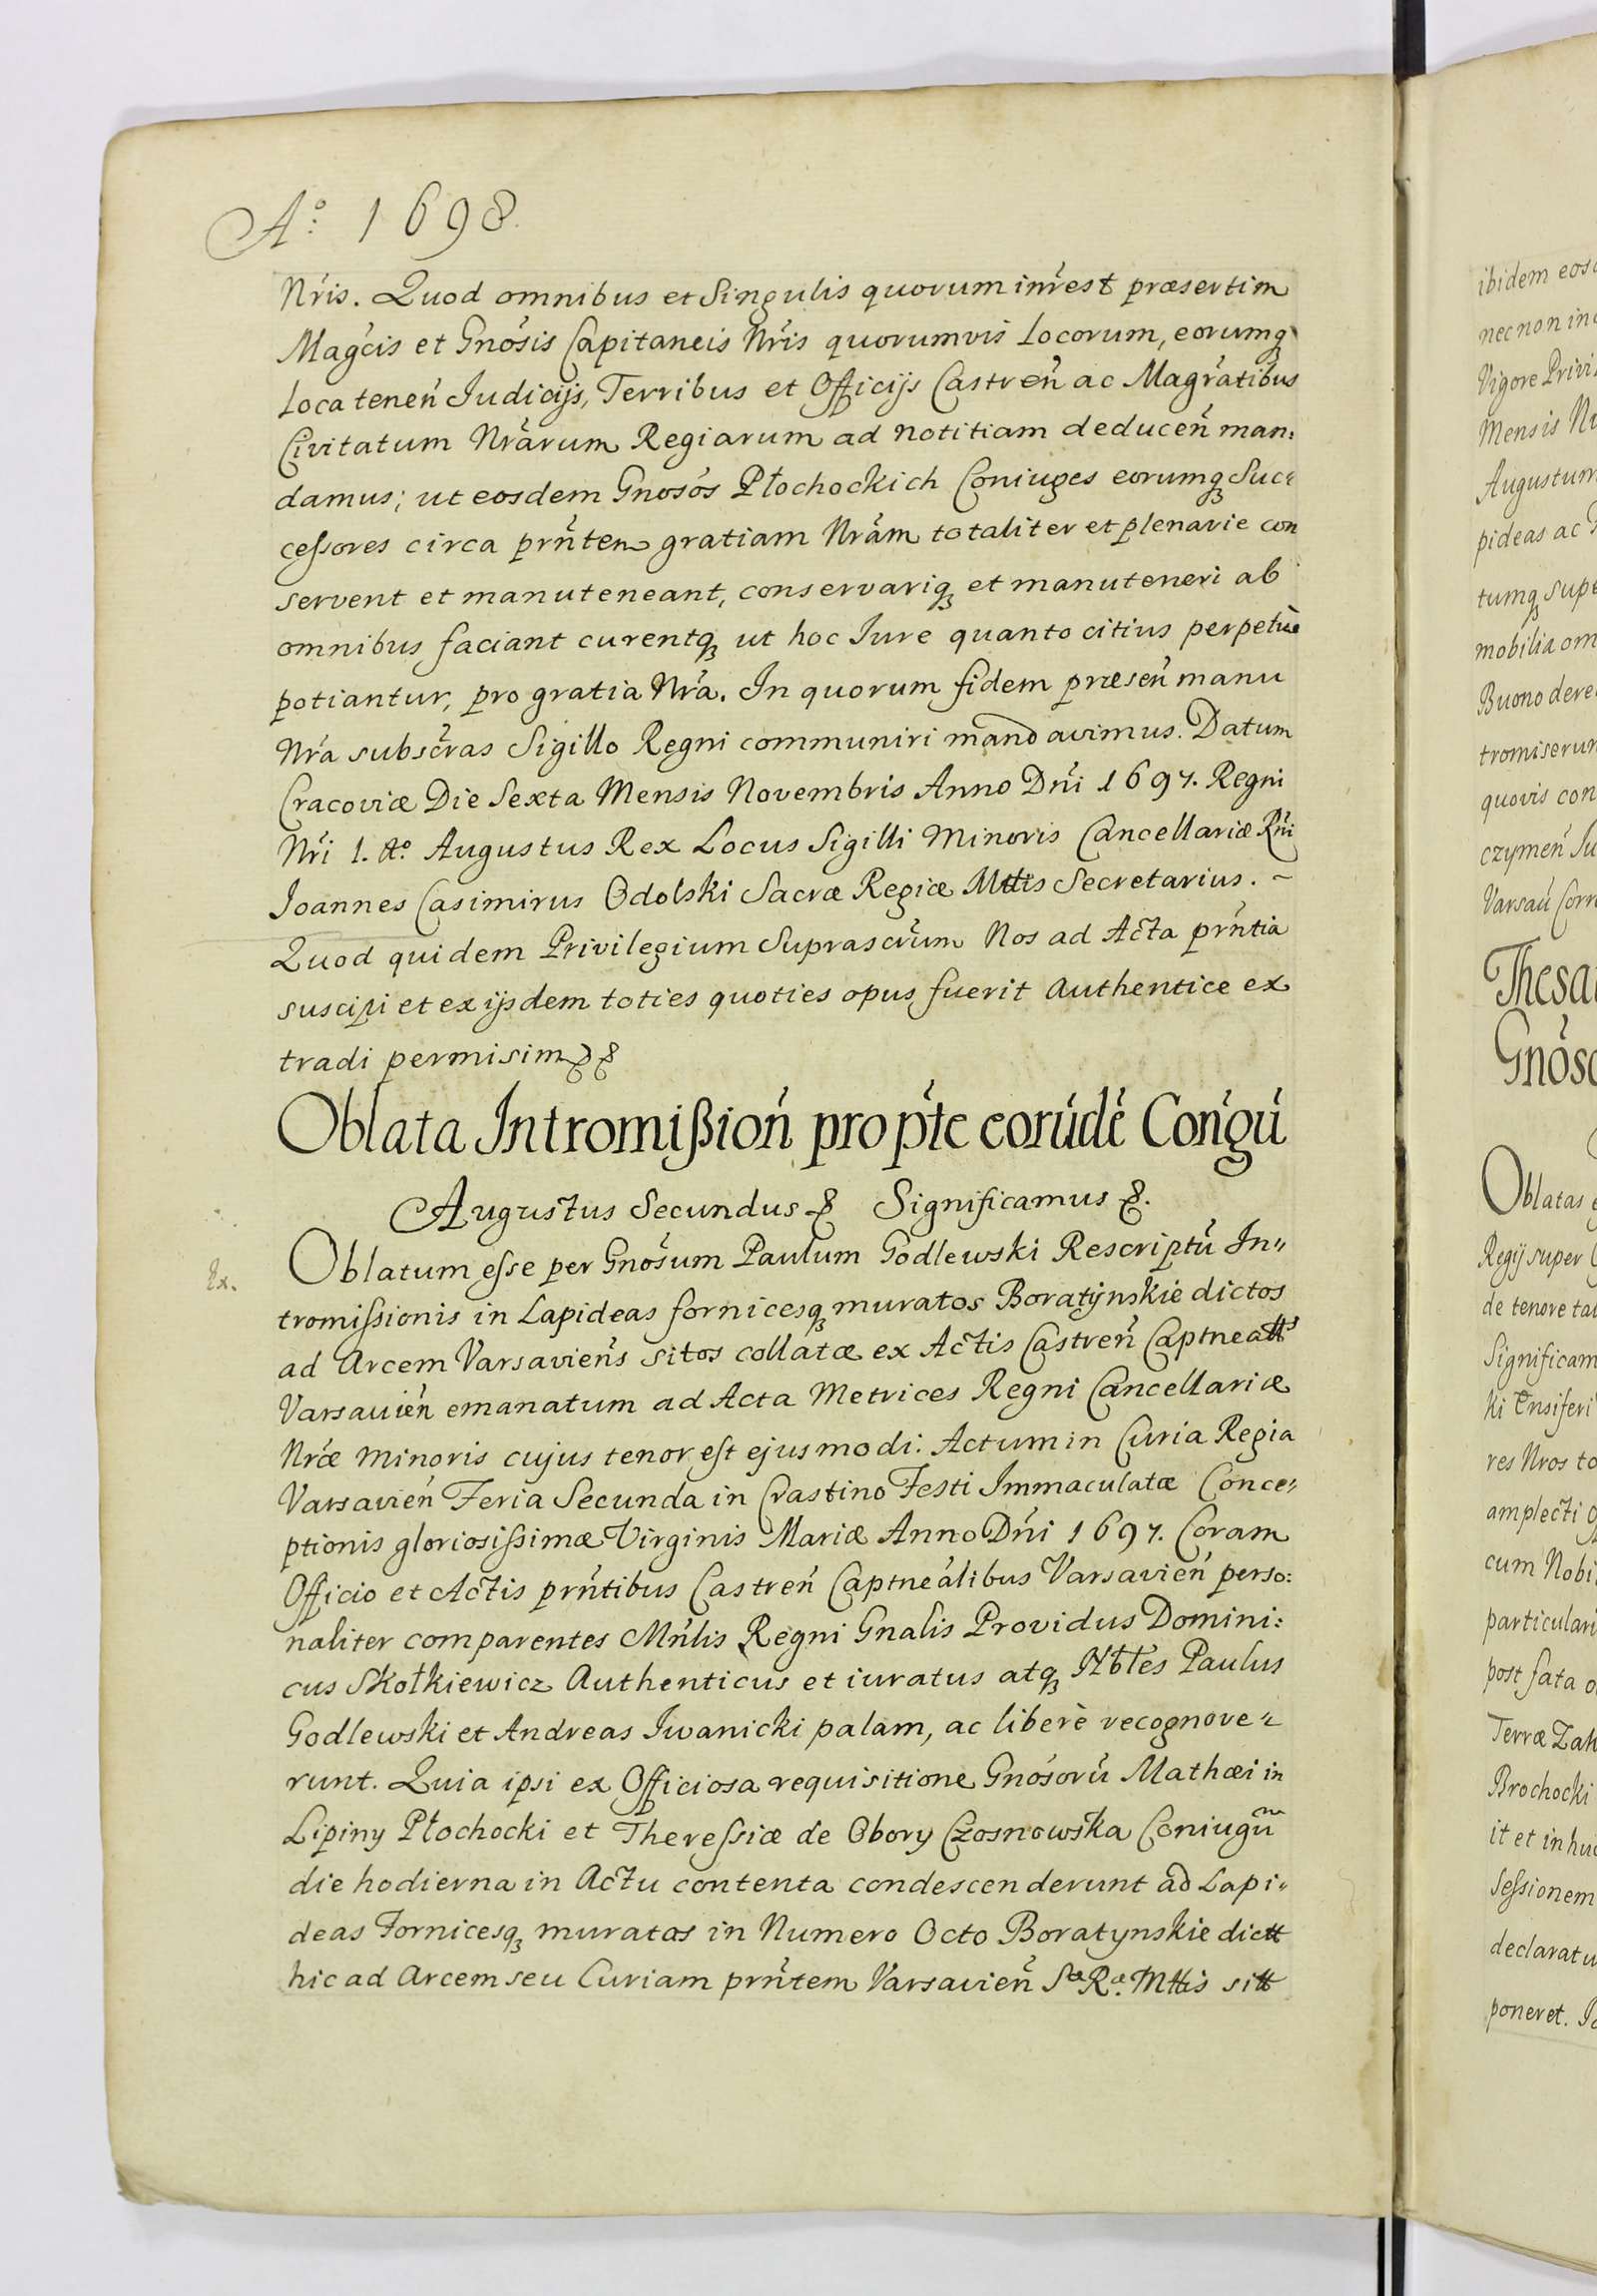 Aº 1698.
Nris. Quod omnibus et Singulis quorum inrest præsertim
Magcis et Gnosis Capitaneis Nris quorumvis Locorum, eorumq
Loca tenen Iudicijs, Terribus et Officijs Castren ac Magratibus
Civitatum Nrarum Regiarum ad notitiam deducen man:
damus; ut eosdem Gnosos Płochockich Coniuges eorumq Suc:
cessores circa prnten gratiam Nram totaliter et plenarie con
servent et manuteneant, conservariq et manuteneri ab
omnibus faciant curentq ut hoc Iure quanto citius perpetuo
potiantur, pro gratia Nra. In quorum fidem præsen manu
Nra subscras Sigillo Regni communiri mandavimus. Datum
Cracoviæ Die Sexta Mensis Novembris Anno Dni 1697. Regni
Nri 1. Aº Augustus Rex Locus Sigilli Minoris Cancellariæ Rni
Joannes Casimirus Odolski Sacræ Regiæ Mttis Secretarius. ~
Quod quidem Privilegium Suprascrum Nos ad Acta prntia
suscipi et ex ijsdem toties quoties opus fuerit Authentice ex
tradi permisim
Oblata Intromißion pro pte eorude Congu
Augustus Secundus Significamus
Oblatum esse per Gnosum Paulum Godlewski Rescriptu In"
Ex.
tromissionis in Lapideas fornicesq muratos Boratynskie dictos
ad Arcem Varsaviens sitos collatæ ex Actis Castren Captneatts
Varsavien emanatum ad Acta Metrices Regni Cancellariæ
Nræ Minoris cujus tenor est ejusmodi. Actum in Curia Regia
Varsavien Feria Secunda in Crastino Festi Immaculatæ Conce"
ptionis gloriosissimæ Virginis Mariæ Anno Dni 1697. Coram
Officio et Actis prntibus Castren Captnealibus Varsavien perso:
naliter comparentes Mnlis Regni Gnalis Providus Domini:
cus Skołkiewicz Authenticus et iuratus atq Nbles Paulus
Godlewski et Andreas Iwanicki palam, ac liberè recognove"
runt. Quia ipsi ex Officiosa requisitione Gnosoru Mathæi in
Lipiny Płochocki et Theressiæ de Obory Czosnowska Coniugum
die hodierna in Actu contenta condescenderunt ad Lapi"
deas Fornicesq muratas in Numero Octo Boratynskie dictt
hic ad Arcem seu Curiam prntem Varsavien Sæ Ræ. Mttis sitt
ibidem eos
nec non in
Vigore Privi
Mensis N
Augustum
pideas ac
tumq supe
mobilia om
Buono dere
tromiserun
quovis con
czymen Iu
Varsav Corr
Thesa
Gnoso
Oblatas
Regij super
de tenore ta
Significam
ki Ensiferi
res Nros to
amplecti
cum Nobi
particulari
post fata
Terræ Zak
Brochocki
it et in hu
Sessionem
declaratu
poneret.